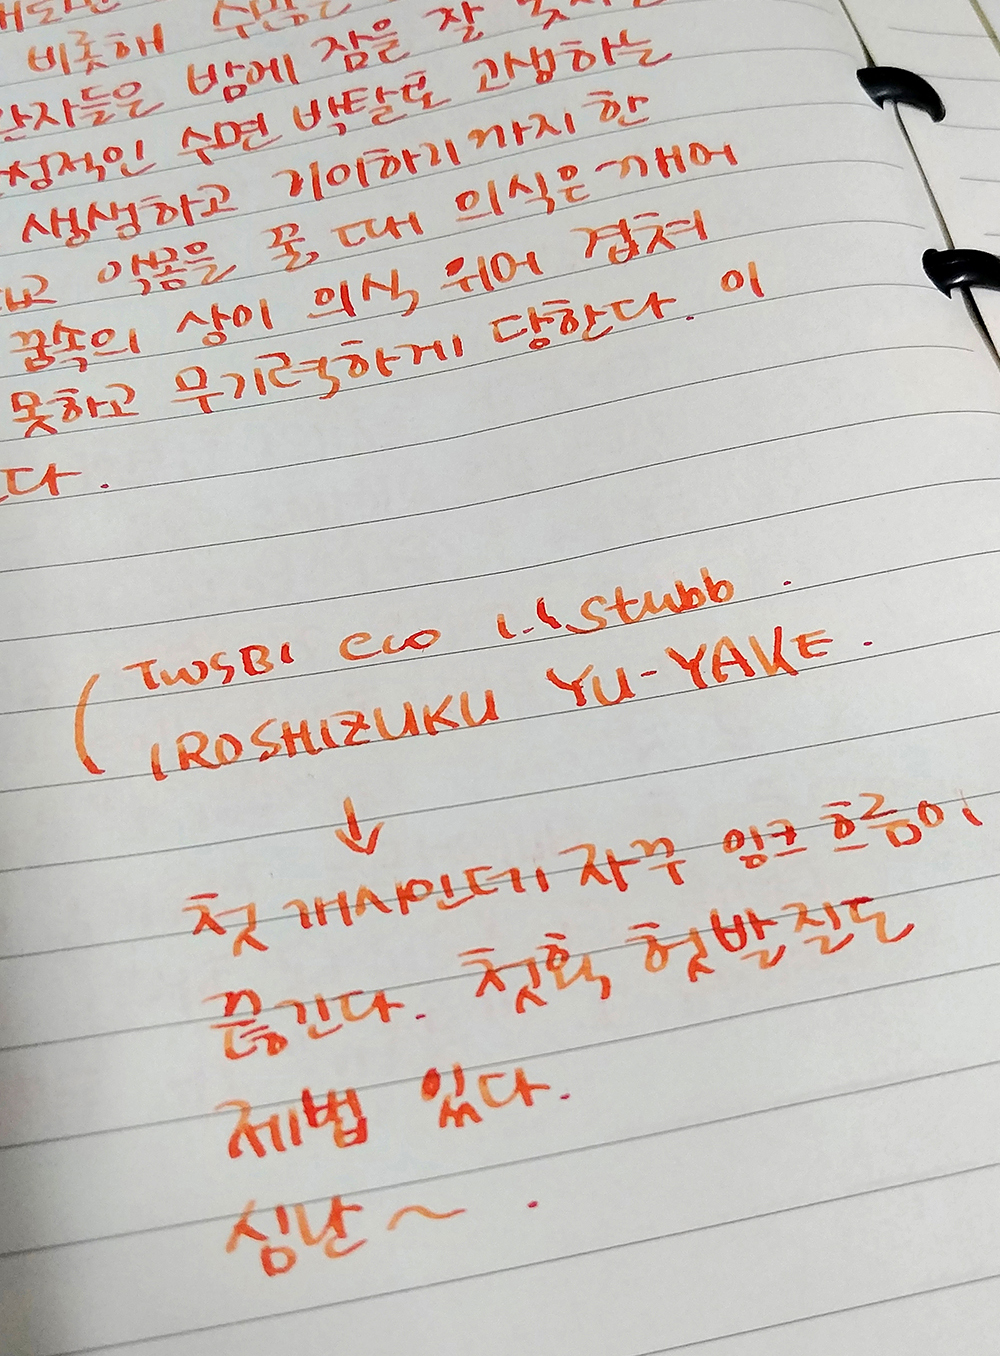 비롯해 수많은
자들은 밤에 잠을 잘
정적인 수면 박탈로 고생하는
생생하고 기이하기까지 한
악몽을 꿀 때 의식은 깨어
꿈속의 상이 의식 위에 겹쳐
못하고 무기력하게 당한다. 이
다.
(TWSBI eco 1.1 Stubb.
IROSHIZUKU YU-YAKE.
↓
첫 개시인데 자꾸 잉크 흐름이
끊긴다. 첫획 헛발질도
제법 있다.
심난~.